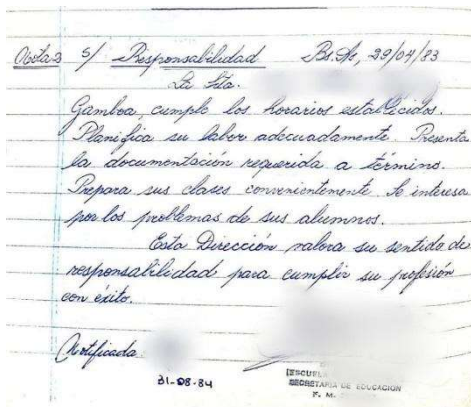 Nota 2 s/ Responsabilidad Bs. As, 29/04/83
La Sta.
Gamboa, cumple los horarios establecidos.
Planifica su labor adecuadamente. Presenta
la documentación requerida a término.
Prepara sus clases convenientemente. Se interesa
por los problemas de sus alumnos.
Esta Dirección valora su sentido de
responsabilidad para cumplir su profesión
con éxito.
Notificada
31-08-84
ESCUEL
SECRETARIA DE EDUCACION
F. M.